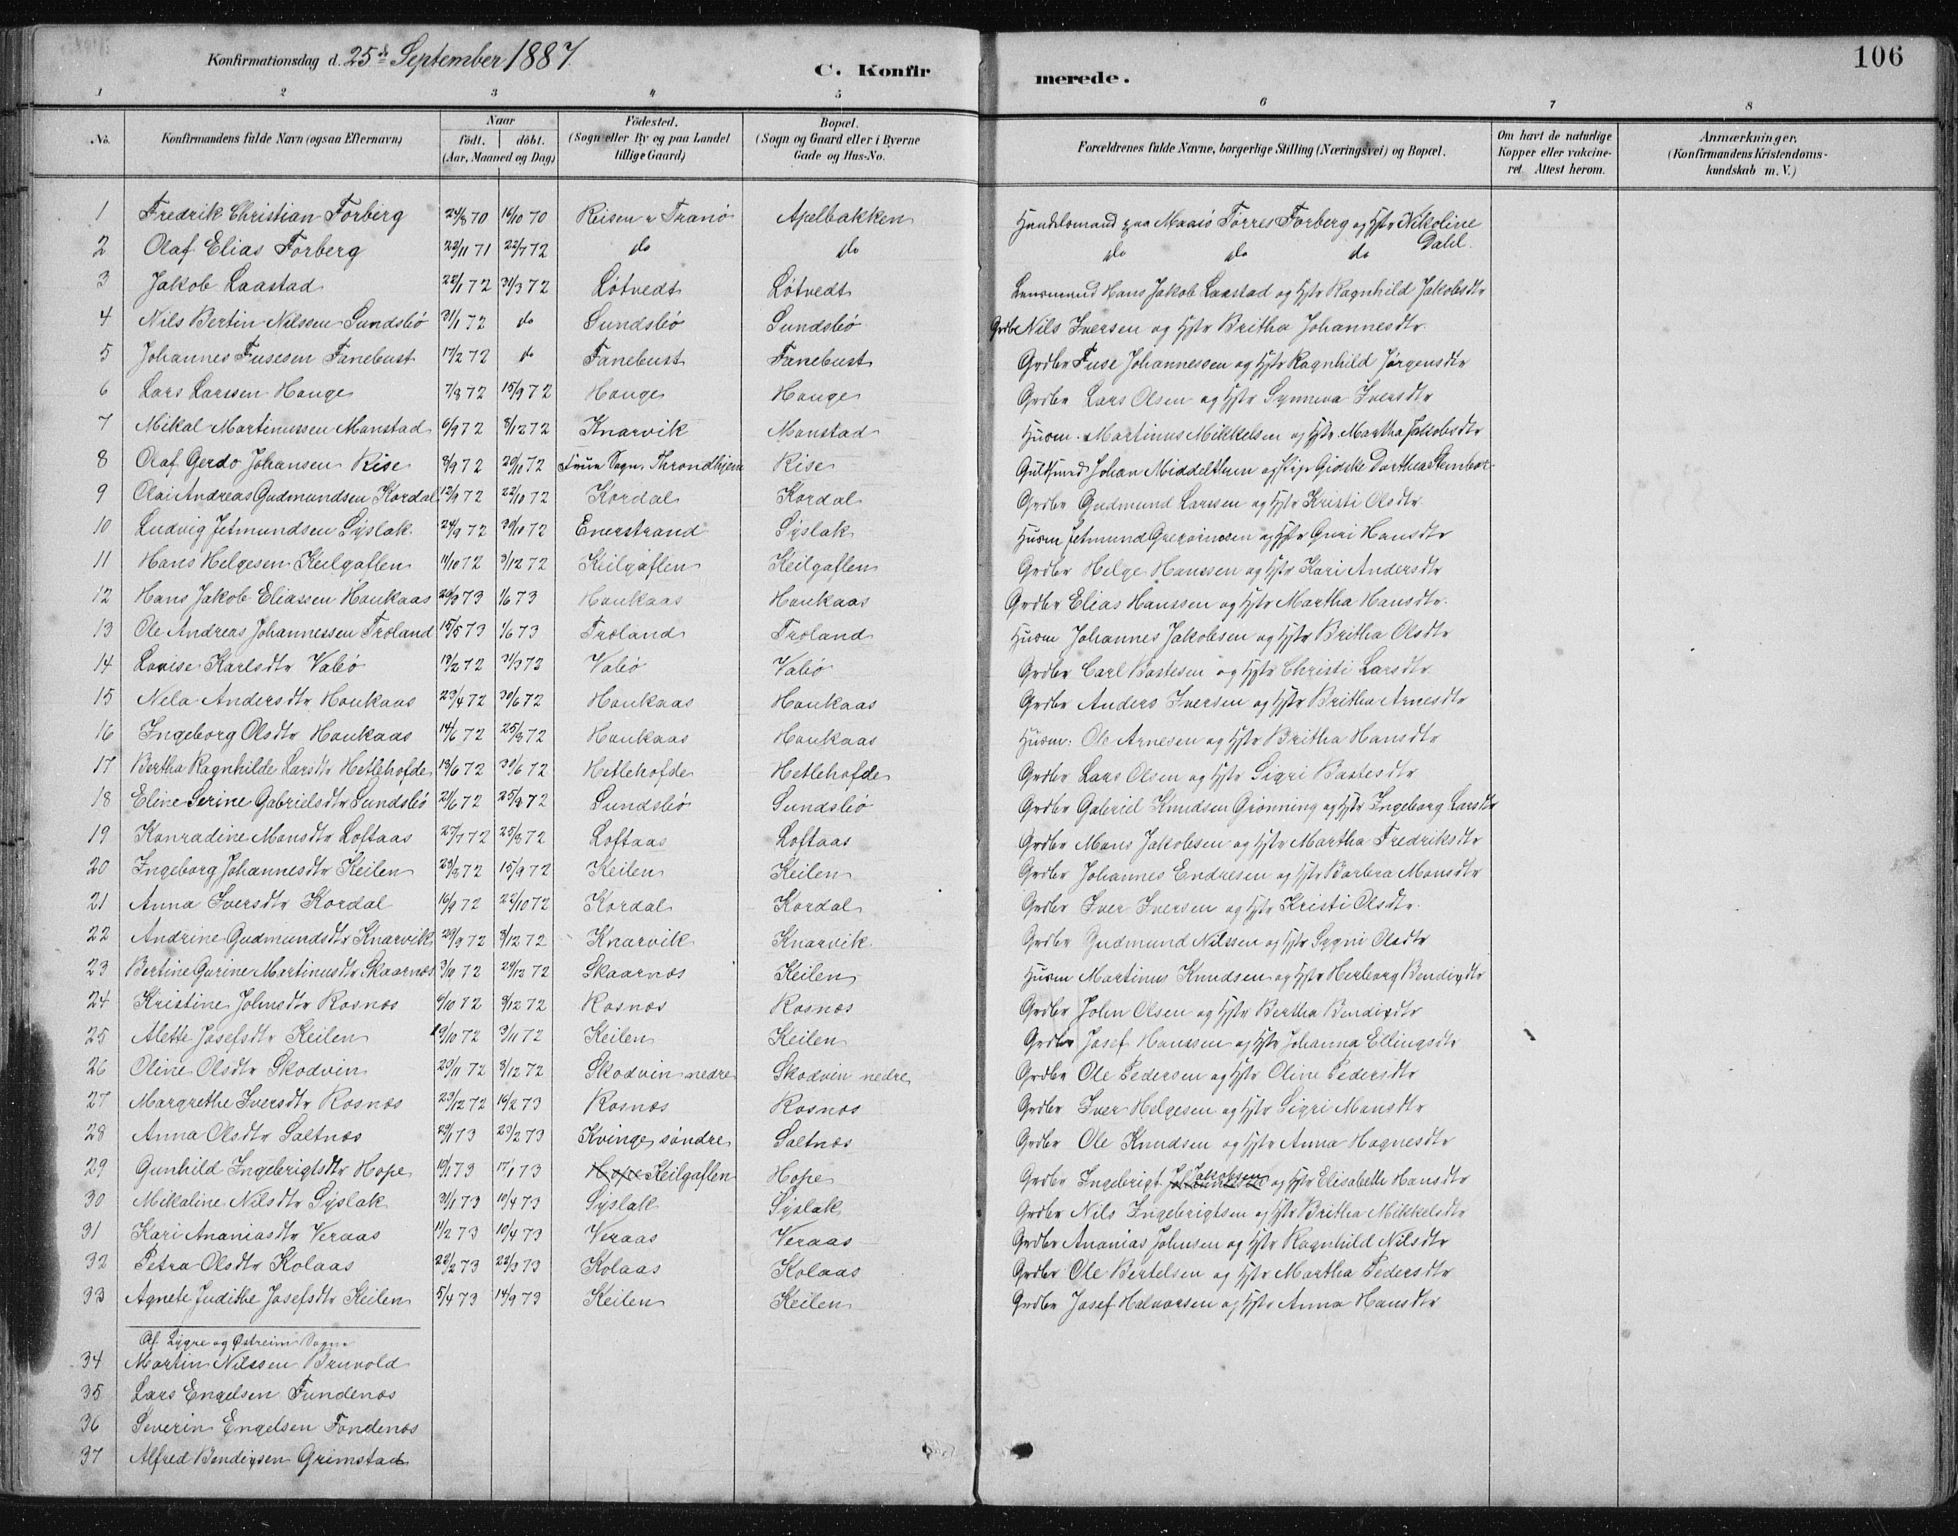 Konfirmationsdag d. 25de September 1887.
C. Konfirmerede.
106
1 2 3 4 5 6 7 8
No. Konfirmandens fulde Navn (ogsaa Efternavn) Naar födt. döbt. (Aar, Maaned og Dag) Födested. (Sogn eller By og paa Landet tillige Gaard) Bopæl. (Sogn og Gaard eller i Byerne Gade og Hus-No. Forældrenes fulde Navne, borgerlige Stilling (Næringsvei) og Bopæl. Om havt de naturlige Kopper eller vakcineret Attest herom. Anmærkninger, (Konfirmandens Kristendomskundskab m. V.)
1 Fredrik Christian Forberg 70 70 Reisen Tranö Apelbakken Handelsmand paa Maasö Torres Forberg og Hstr Nikoline Dahl.
2 Olaf Elias Forberg 22/11 71 22/7 72 do do do do do
3 Jakob Laastad 22/1 72 31/3 72 Løtvedt Løtvedt Lensmand Hans Jakob Laastad og Hstr Ragnhild Jakobsdtr
4 Nils Bertin Nilssen Sundsbö 31/1 72 do Sundsbö Sundsbö Grdbr Nils Iversen og Hstr Britha Johannesdtr.
5 Johannes Fusesen Fanebust 17/2 72 do Fanebust Fanebust Grdbr Fuse Johannessen og Hstr Ragnhild Jørgensdtr
6 Lars Larssen Hauge 72 15/9 72 Hauge Hauge Grdbr Lars Olsen og Hstr Synneva Iversdtr
7 Mikal Martinussen Monstad 6/9 72 8/12 72 Knarvik Monstad Husm. Martinus Mikkelsen og Hstr Martha Jakobsdtr
8 Olaf Gerdo Johansen Rise 8/9 72 20/10 72 Frue Sogn, Throndhjem Rise Guldsmed Johan Middelthun og Pige Gidske Dorthea
9 Olai Andreas Gudmundsen Kordal 12/9 72 22/10 72 Kordal Kordal Grdbr Gudmund Larssen og Hstr Kristi Olsdtr
10 Ludvig Jetmundsen Syslak 24/9 72 30/10 72 Enerstrand Syslak Husm Jetmund og Hstr Guri Hansdtr
11 Hans Helgesen Keilgaflen 11/10 72 3/12 72 Keilgaflen Keilgaflen Grdbr Helge Hanssen og Hstr Kari Andersdtr
12 Hans Jakob Eliassen Haukaas 73 1/6 73 Haukaas Haukaas Grdbr Elias Hanssen og Hstr Martha Hansdtr.
13 Ole Andreas Johannessen Troland 15/5 73 1/6 73 Troland Troland Husm Johannes Jakobsen og Hstr Britha Olsdtr
14 Lovise Karlsdtr Valö 19/2 72 31/3 72 Valö Valö Grdbr Carl Bastesen og Hstr Christi Larsdtr.
15 Nela Andersdtr Haukaas 23/4 72 30/6 72 Haukaas Haukaas Grdbr Anders Iversen og Hstr Britha Arnesdtr
16 Ingeborg Olsdtr Haukaas 14/6 72 25/8 72 Haukaas Haukaas Husm: Ole Arnesen og Hstr Britha Hansdtr
17 Bertha Ragnhilde Larsdtr Hetlehofde 13/6 72 30/6 72 Hetlehofde Hetlehofde Grdbr Lars Olsen og Hstr Sigri Bastesdtr
18 Eline Serine Gabrielsdtr Sundsbö 21/6 72 25/8 72 Sundsbö Sundsbö Grdbr Gabriel Knudsen Grønning og Hstr Ingeborg Larsdtr
19 Konradine Monsdtr Loftaas 27/7 72 25/8 72 Loftaas Loftaas Grdbr Mons Jakobsen og Hstr Martha Fredriksdtr
20 Ingeborg Johannesdtr Keilen 23/8 72 15/9 72 Keilen Keilen Grdbr Johannes Endresen og Hstr Barbra Monsdtr
21 Anna Iversdtr Kordal 16/9 72 22/10 72 Kordal Kordal Grdbr Iver Iversen og Hstr Kristi Olsdtr.
22 Andrine Gudmundsdtr Knarvik 29/9 72 8/12 72 Knarvik Knarvik Grdbr Gudmund Nilssen og Hstr Sygni Olsdtr
23 Bertine Gurine Martinusdtr Skaarnes 3/10 72 29/12 72 Skaarnes Keilen Husm Martinus Knudsen og Hstr Herborg Bendixdtr
24 Kristine Johnsdtr Rosnes 6/10 72 8/12 72 Rosnes Rosnes Grdbr John Olsen og Hstr Bertha Bendixdtr
25 Alette Josefsdtr Keilen 19/10 72 3/11 72 Keilen Keilen Grdbr Josef Hanssen og Hstr Johanna Ellingsdtr
26 Oline Olsdtr Skodvin 23/11 72 8/12 72 Skodvin nedre Skodvin nedre Grdbr Ole Pedersen og Hstr Oline Pedersdtr
27 Margrethe Iversdtr Rosnes 23/12 72 16/2 73 Rosnes Rosnes Grdbr Iver Helgesen og Hstr Sigri Monsdtr
28 Anna Olsdtr Saltnes 29/1 73 23/2 73 Kvinge søndre Saltnes Grdbr Ole Knudsen og Hstr Anna Hagnesdtr
29 Gunhild Ingebrigtsdtr Hope 10/1 73 17/1 73 Hope Keilgaflen Hope Grdbr Ingebrigt Jakobsen og Hstr Elisabeth Hansdtr
30 Mikaline Nilsdtr Syslak 31/1 73 10/4 73 Syslak Syslak Grdbr Nils Ingebrigtsen og Hstr Britha Mikkelsdtr
31 Kari Ananiasdtr Veraas 11/2 73 10/4 73 Veraas Veraas Grdbr Ananias Johnsen og Hstr Ragnhild Nilsdtr
32 Petra Olsdtr Kolaas 22/2 73 22/3 73 Kolaas Kolaas Grdbr Ole Bertelsen og Hstr Martha Pedersdtr
33 Agnete Judithe Josefsdtr Keilen 5/4 73 14/9 73 Keilen Keilen Grdbr Josef Halvorsen og Hstr Anna Hansdtr
Af Lygre og Østreim Sogne
34 Martin Nilssen Bruvold
35 Lars Engelsen Fundenes
36 Severin Engelsen Fondenes
37 Alfred Bendixsen Grimstad